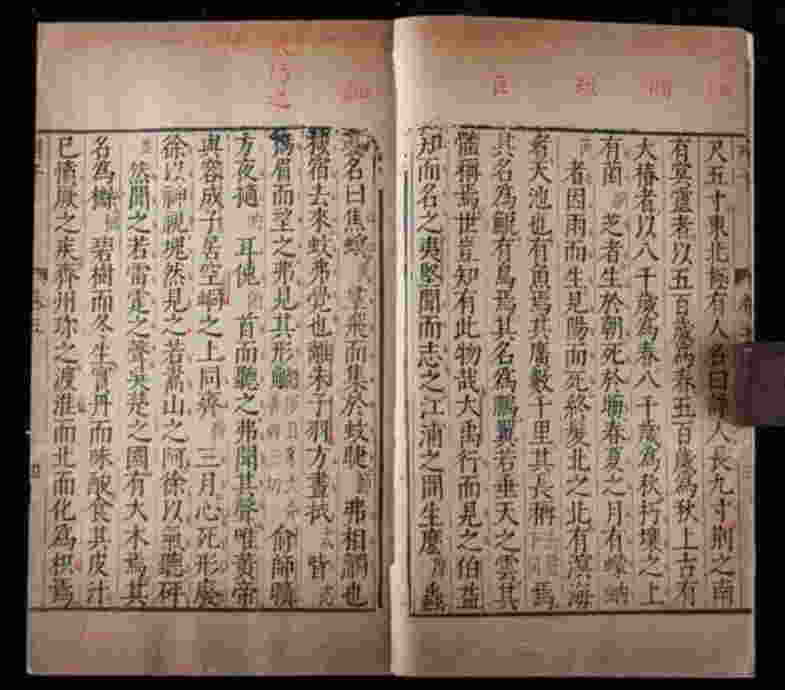 尺五寸東北極有人名曰諍人長九寸荊之南
有冥靈者以五百歲為春五百歲為秋上古有
大椿者以八千歲為春八千歲為秋朽壤之上
有菌芝者生於朝死於晦春夏之月有蠓蚋
者因雨而生見陽而死終髮北之北有溟海
者天池也有魚焉其廣數千里其長稱焉
其名為鯤有鳥焉其名為鵬翼若垂天之雲其
體稱焉世豈知有此物哉大禹行而見之伯益
知而名之夷堅聞而志之江浦之間生麼蟲
名曰焦螟羣飛而集於蚊睫弗相觸也
栖宿去來蚊弗覺也離朱子羽方晝拭眥
揚眉而望之弗見其形䚦俞師曠
方夜擿耳俛首而聽之弗聞其聲唯黃帝
與容成子居空峒之上同齊三月心死形廢
徐以神視塊然見之若嵩山之阿徐以氣聽砰
然聞之若雷霆之聲吳楚之國有大木焉其
名為櫾碧樹而冬生實丹而味酸食其皮汁
已憤厥之疾齊州珍之渡淮而北而化為枳焉